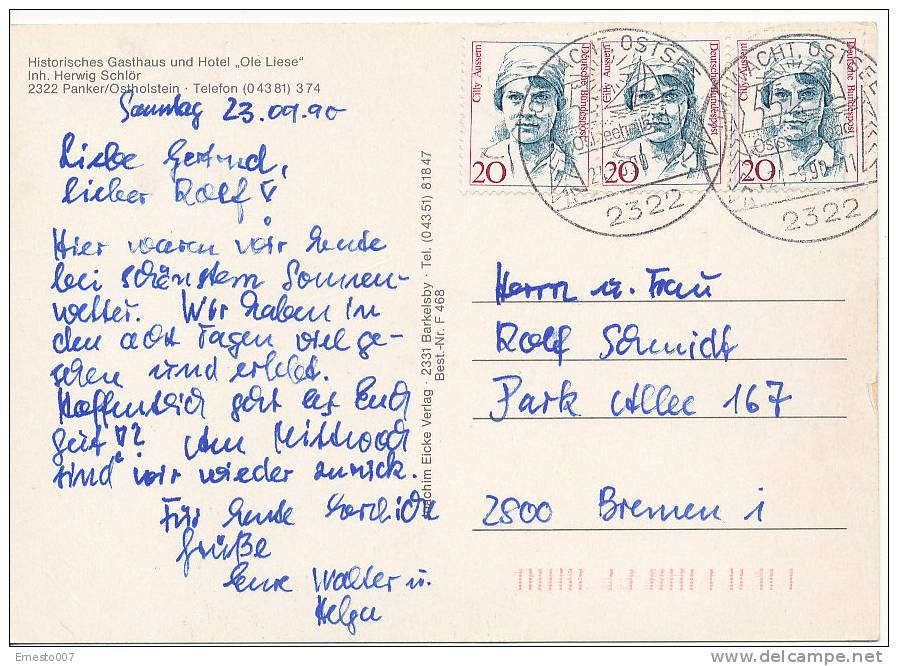 Historisches Gasthaus und Hotel „Ole Liese"
Inh. Herwig Schlör
2322 Panker/Ostholstein · Telefon (0 43 81) 3 74
Sonntag 23.09.90
Liebe Gertrud,
lieber Rolf!
Hier waren wir heute
bei schönstem Sonnen-
wetter. Wir haben in
den acht Tagen viel ge-
sehen und erlebt.
Hoffentlich geht es Euch
gut!? Am Mittwoch
sind wir wieder zurück.
Für heute herzliche
Grüße
Eure Walter u.
Helga
Joachim Eicke Verlag · 2331 Barkelsby · Tel. (0 43 51) 8 18 47
Best.-Nr. F 468
Cilly Aussem
Deutsche Bundespost
20
Cilly Aussem
Deutsche Bundespost
20
Cilly Aussem
Deutsche Bundespost
20
OSTSEE
2322
OSTSEE
2322
Herrn u. Frau
Rolf Schmidt
Park Allee 167
2800 Bremen 1
Ernesto007
delcampe.net